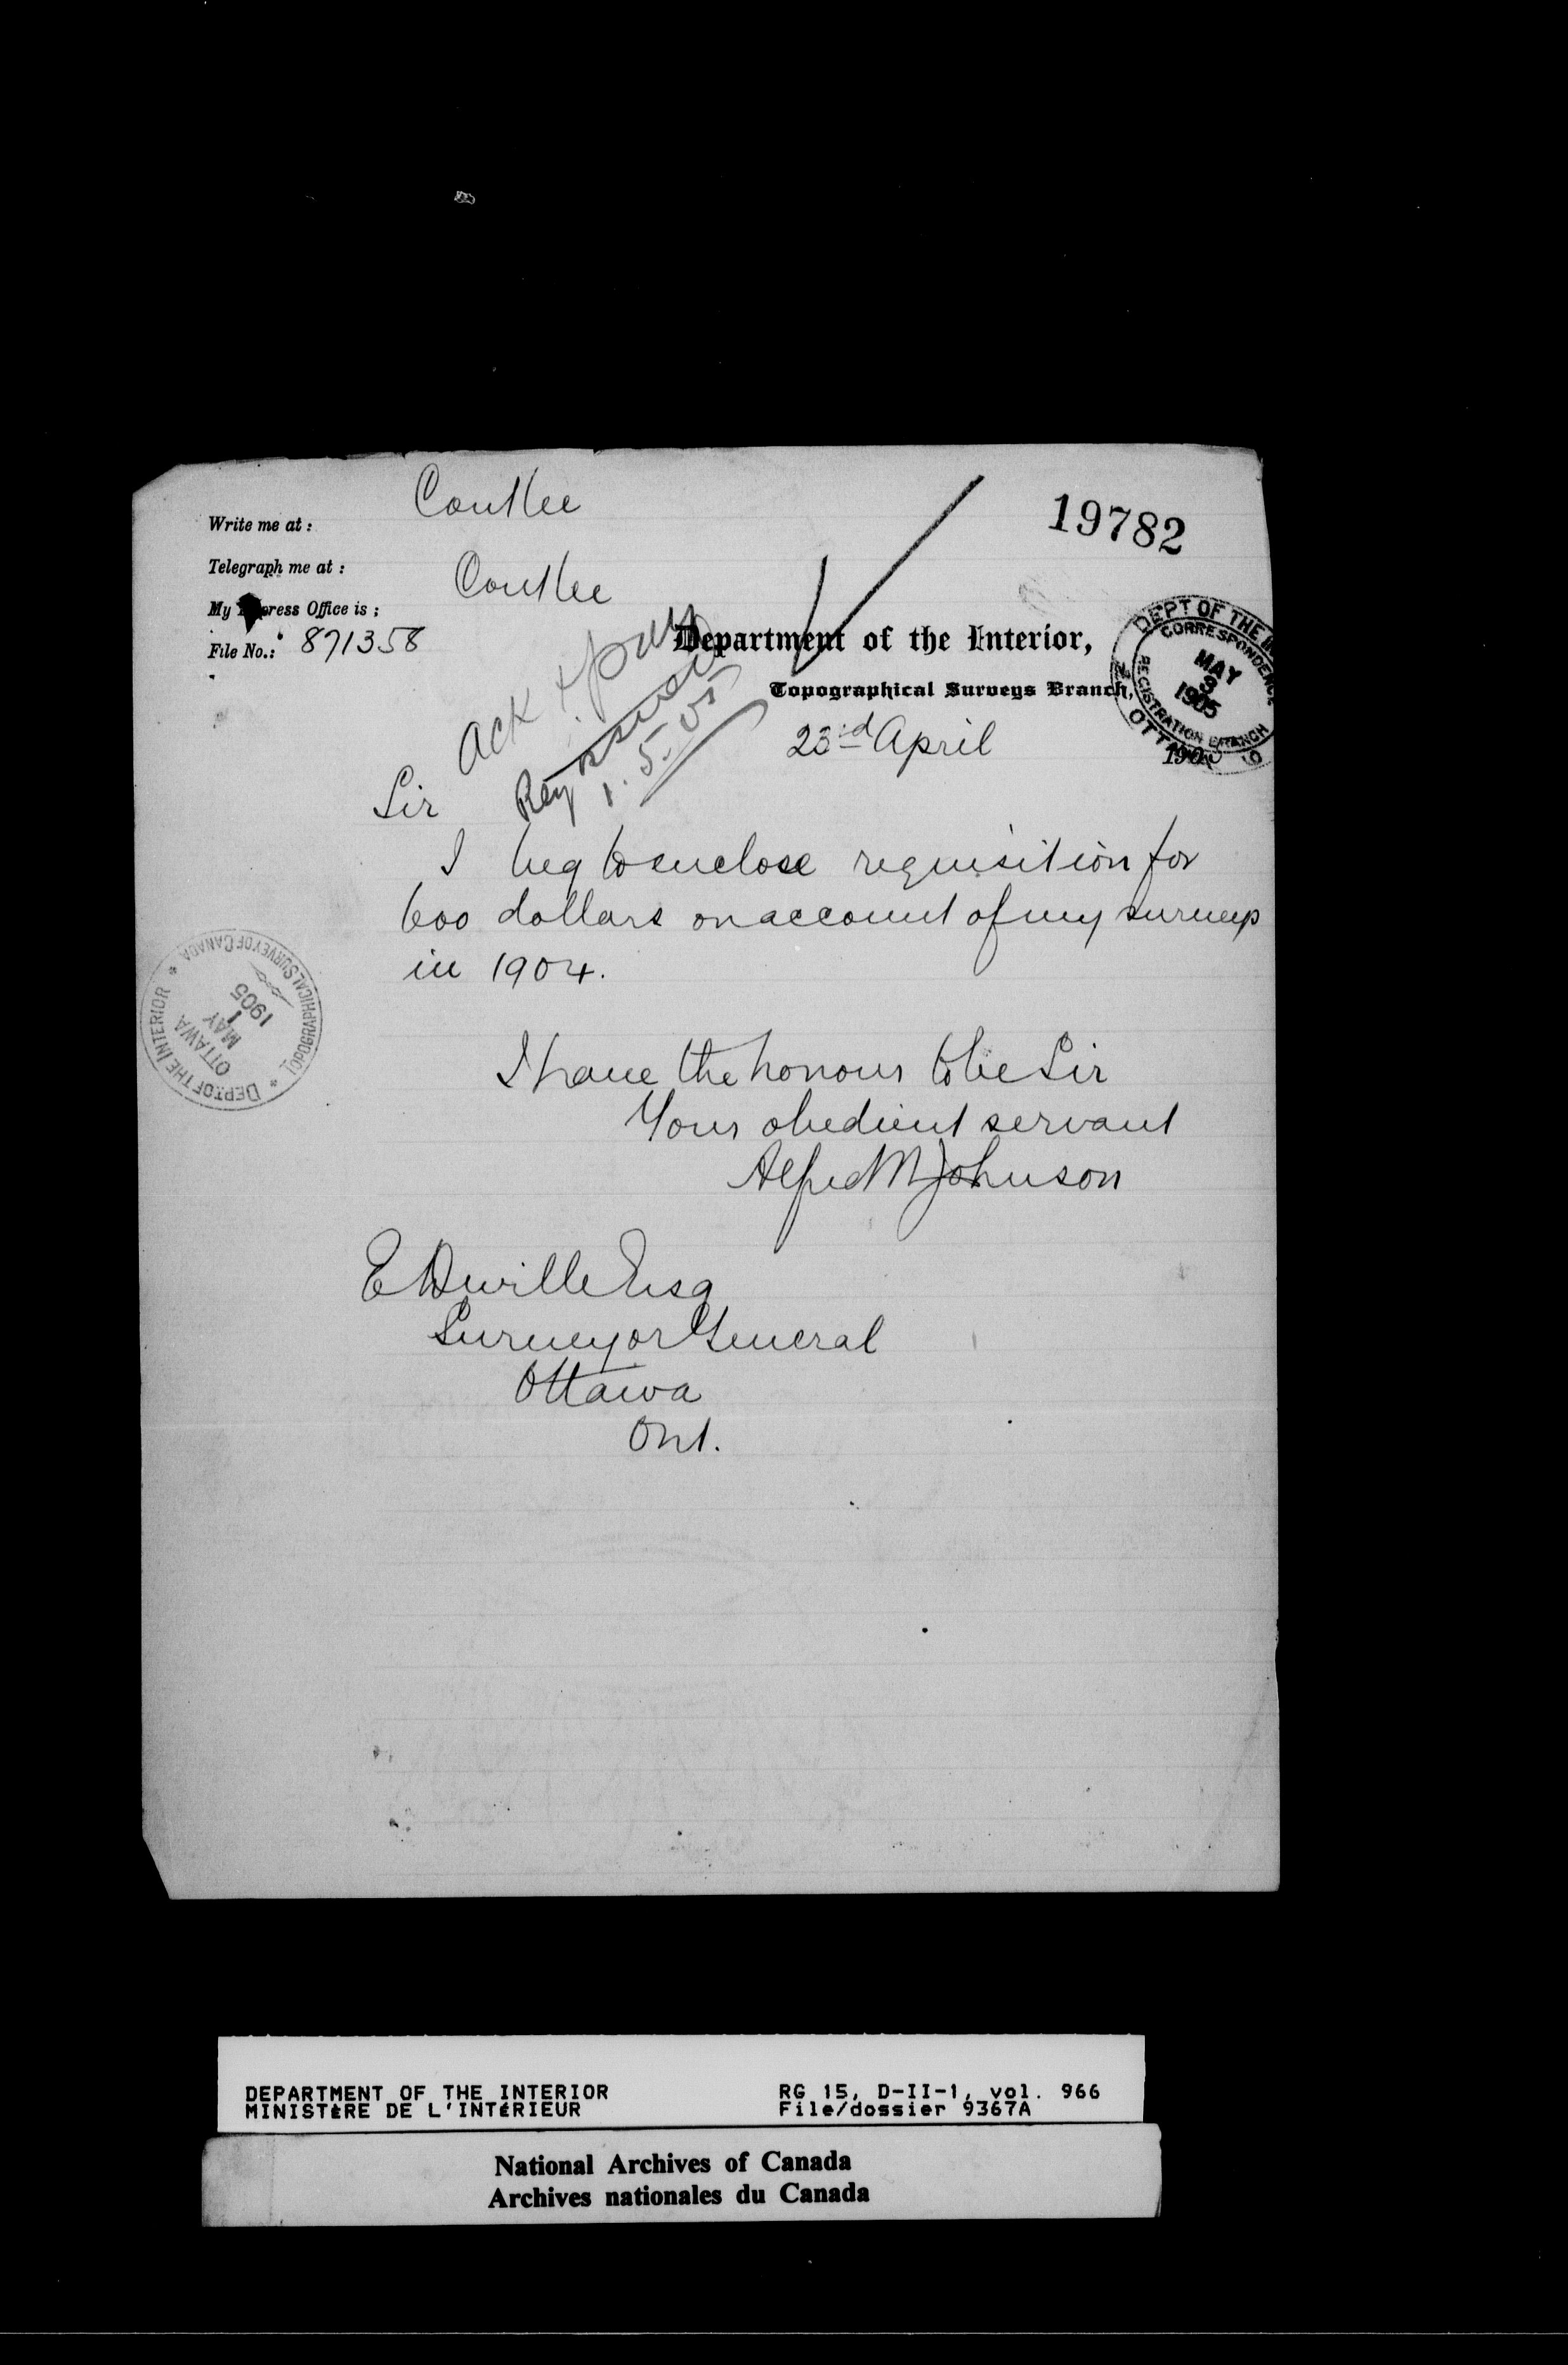 Write me at : Coutlee
19782
Telegraph me at : Coutlee
My Express Office is ;
File No.: 871358
Department of the Interior,
Topographical Surveys Branch,
DEPT OF THE IN
CORRESPONDENCE
MAY
3
1905
REGISTRATION BRANCH
OTTAWA
Ack & pay
Req
1.5.05
23rd April 190
Sir
I beg to enclose requisition for
600 dollars on account of my surveys
in 1904.
DEPT. OF THE INTERIOR * TOPOGRAPHICAL SURVEY OF CANADA *
OTTAWA
MAY
1
1905
I have the honour to be Sir
Your obedient servant
Alfred M Johnson
E Deville Esq
Surveyor General
Ottawa
Ont.
DEPARTMENT OF THE INTERIOR
MINISTÈRE DE L'INTÉRIEUR
RG 15, D-II-1, vol. 966
File/dossier 9367A
National Archives of Canada
Archives nationales du Canada